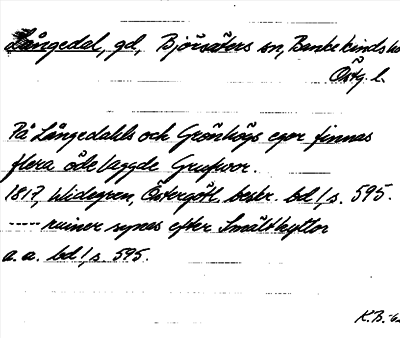 Långedal, gd, Björsäters sn, Bankekinds h
Östg. l.
På Långedahls och Grönhögs egor finnas
flera ödelaggde Grufvor.
1817, Widegren, Östergötl. beskr. bd 1, s. 595.
----- ruiner synes efter Smälthyttor
a. a. bd 1, s. 595.
K.B.